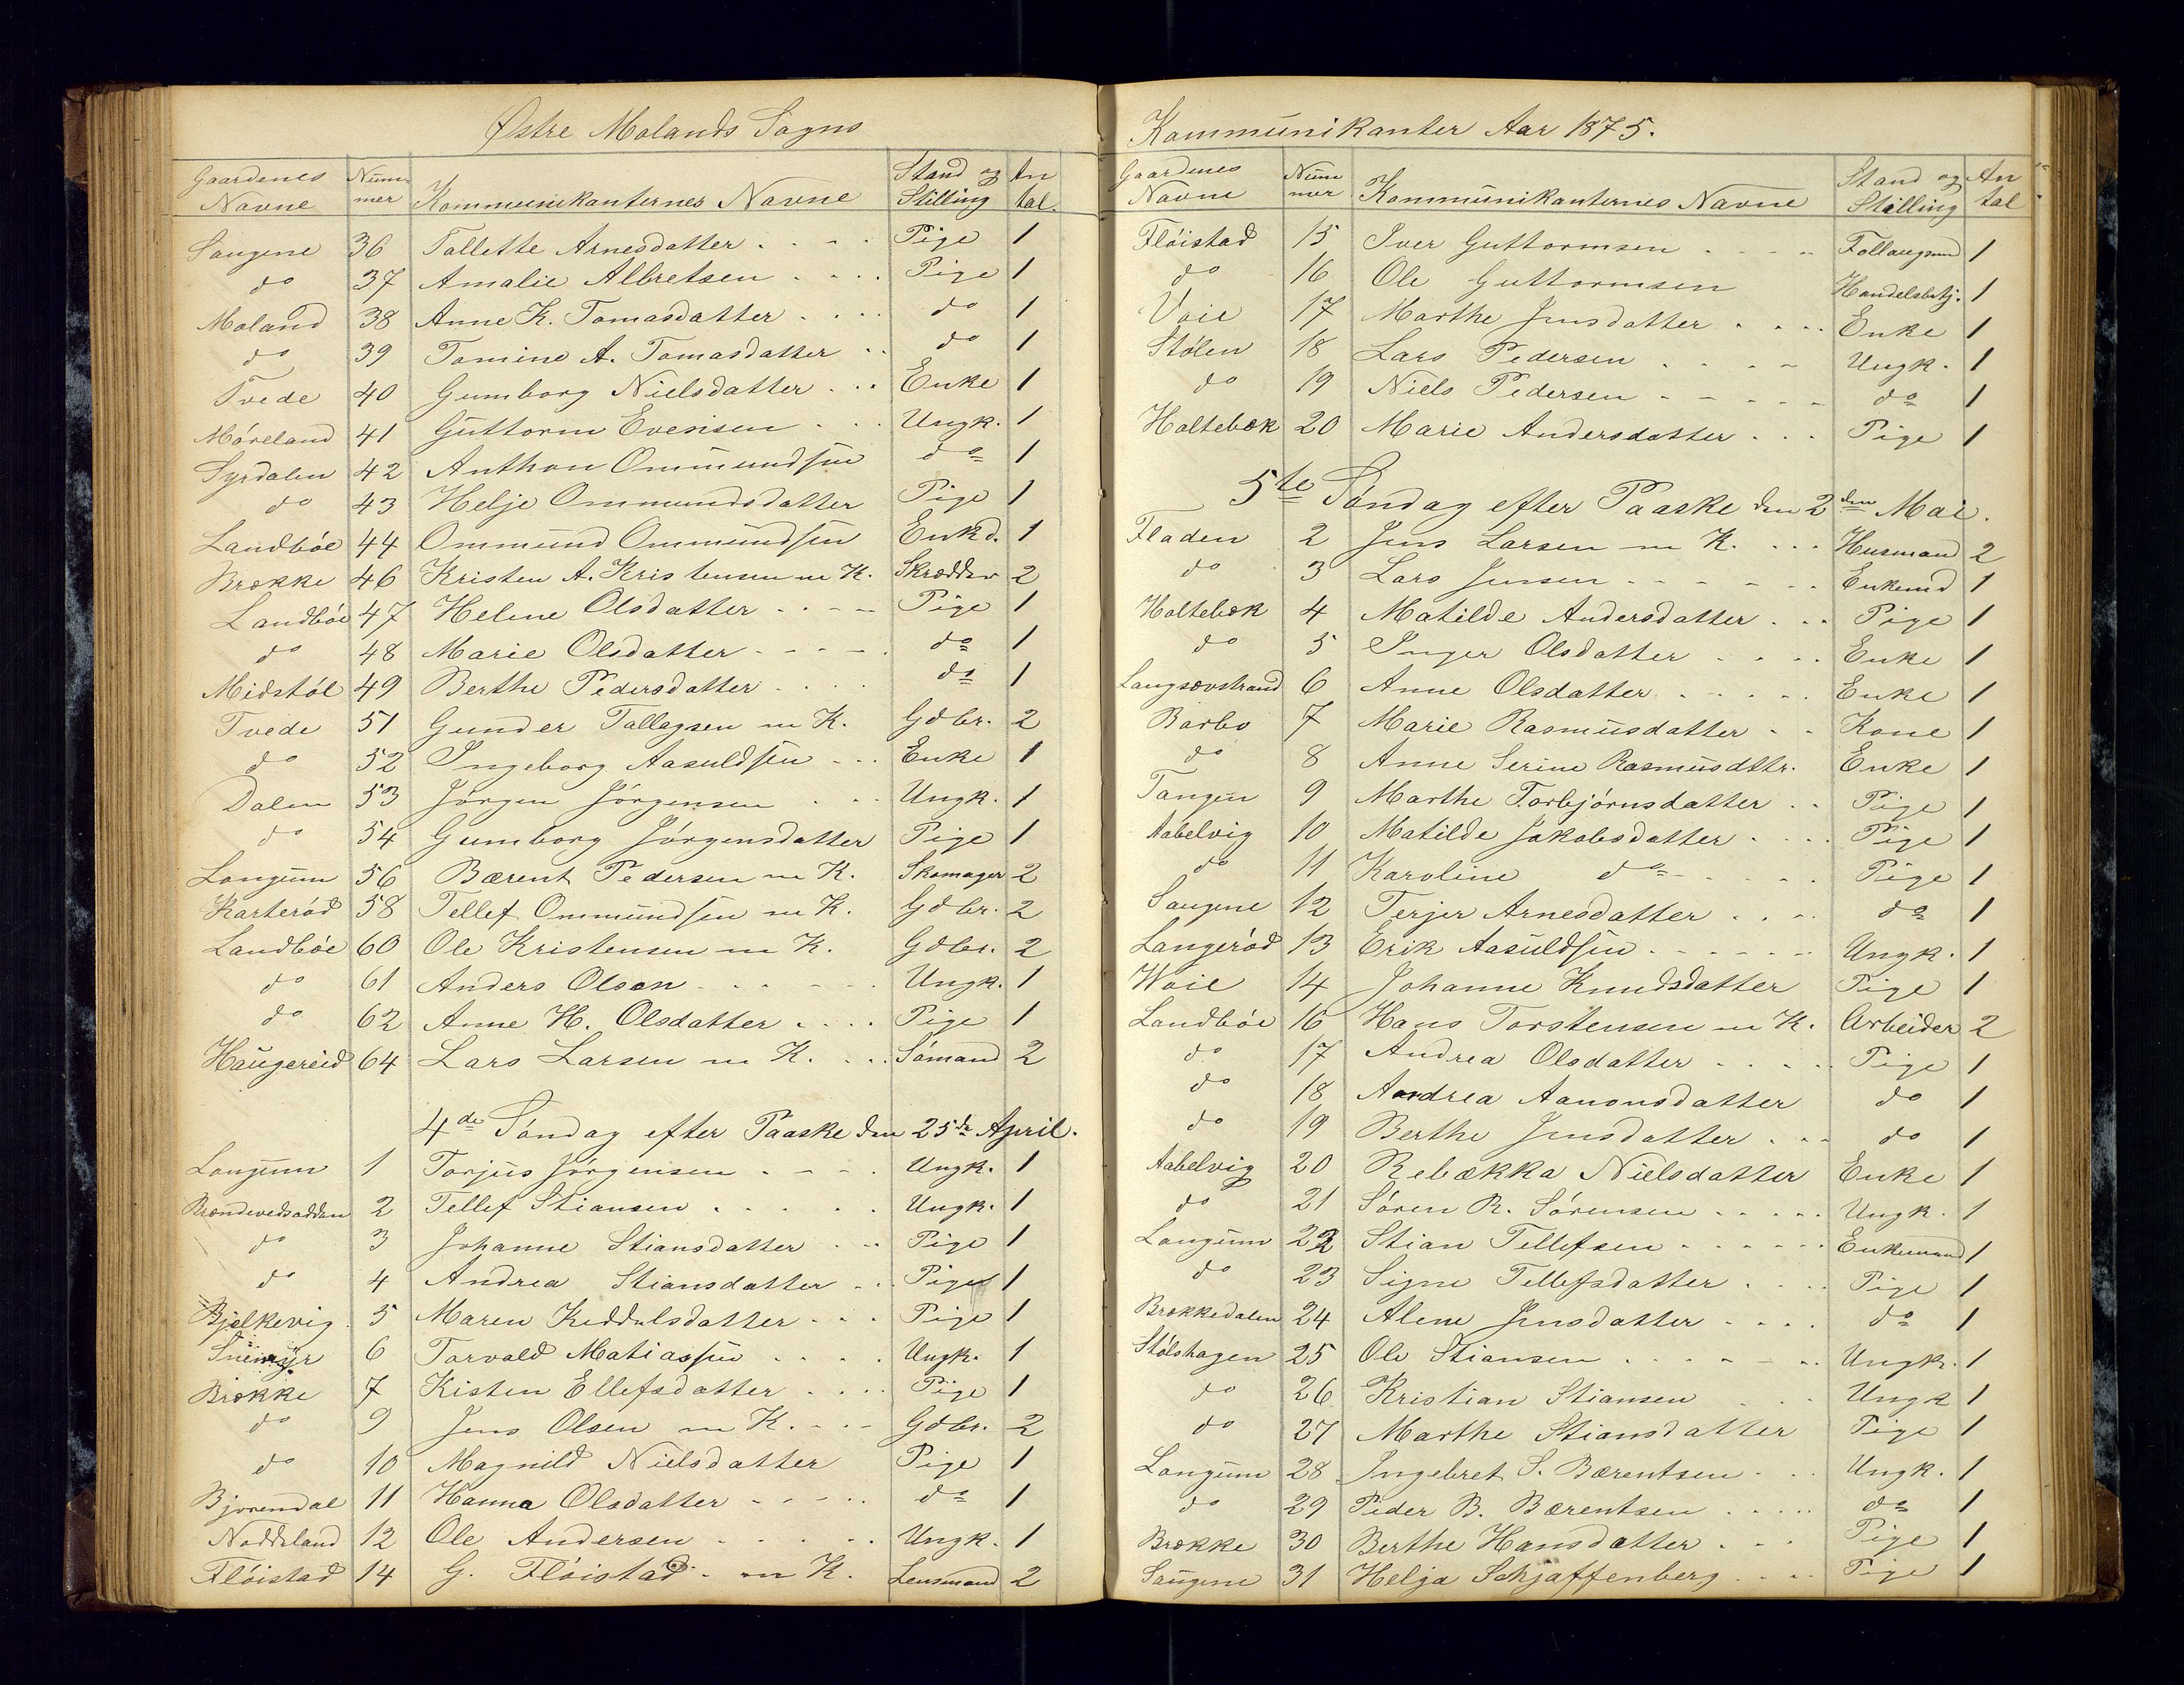 Østre Molands Sogns
Gaardenes Navne Num-mer Kommunikanternes Navne Stand og Stilling Antal.
Saugene 36 Tallette Arnesdatter Pige 1
do 37 Amalie Albretsen Pige 1
Moland 38 Anne K. Tomasdatter do 1
do 39 Tomine A. Tomasdatter do 1
Tvede 40 Gumborg Nielsdatter Enke 1
Møreland 41 Guttorm Evensen Ungk. 1
Syrdalen 42 Anthon Ommundsen do 1
do 43 Helje Ommundsdatter Pige 1
Landbøe 44 Ommund Ommundsen Enkd. 1
Brække 46 Kristen A. Kristensen m K. Skrædder 2
Landbøe 47 Helene Olsdatter Pige 1
do 48 Marie Olsdatter do 1
Midstøl 49 Berthe Pedersdatter do 1
Tvede 51 Gunder Tallagsen m K. Gdbr. 2
do 52 Ingeborg Aasuldsen Enke 1
Dalen 53 Jørgen Jørgensen Ungk. 1
do 54 Gumborg Jørgensdatter Pige 1
Longum 56 Bærent Pedersen m K. Skomager 2
Karterød 58 Tellef Ommundsen m K. Gdbr. 2
Landbøe 60 Ole Kristensen m K. Gdbr. 2
do 61 Anders Olsen Ungk. 1
do 62 Anne H. Olsdatter Pige 1
Haugereid 64 Lars Larsen m K. Sømand 2
4de Søndag efter Paaske den 25de April.
Longum 1 Torjus Jørgensen Ungk. 1
Brændevedsodden 2 Tellef Stiansen Ungk. 1
do 3 Johanne Stiansdatter Pige 1
do 4 Andrea Stiansdatter Pige 1
Bjelkevig 5 Maren Keddelsdatter Pige 1
6 Torvald Matiassen Ungk. 1
Brække 7 Kisten Ellefsdatter Pige 1
do 9 Jens Olsen m K. Gdbr. 2
do 10 Magnild Nielsdatter Pige 1
Bjorendal 11 Hanna Olsdatter do 1
Noddeland 12 Ole Andersen Ungk. 1
Fløistad 14 G. Fløistad m K. Lensmand 2
Kommunikanter Aar 1875.
Gaardenes Navne Num mer Kommunikanternes Navne Stand og Stilling Antal
Fløistad 15 Iver Guttormsen 1
do 16 Ole Guttormsen Handelsbetj. 1
Voie 17 Marthe Jensdatter Enke 1
Stølen 18 Lars Pedersen Ungk. 1
do 19 Niels Pedersen do 1
Holtebæk 20 Marie Andersdatter Pige 1
5te Søndag efter Paaske den 2den Mai.
Fladen 2 Jens Larsen m K. Husmand 2
do 3 Lars Jensen Enkemd 1
Holtebæk 4 Matilde Andersdatter Pige 1
do 5 Inger Olsdatter Enke 1
Langsævstrand 6 Anne Olsdatter Enke 1
Barbo 7 Marie Rasmusdatter Kone 1
do 8 Anne Serine Rasmusdttr. Enke 1
Tangen 9 Marthe Torbjørnsdatter Pige 1
Aabelvig 10 Matilde Jakobsdatter Pige 1
do 11 Karoline do Pige 1
Saugene 12 Terjer Arnesdatter do 1
Langerød 13 Erik Aasuldsen Ungk. 1
Woie 14 Johanne Knudsdatter Pige 1
Landbøe 16 Hans Torstensen m K. Arbeider 2
do 17 Andrea Olsdatter Pige 1
do 18 Andrea Aanonsdatter do 1
do 19 Berthe Jensdatter do 1
Aabelvig 20 Rebækka Nielsdatter Enke 1
do 21 Søren R. Sørensen Ungk. 1
Longum 22 Stian Tellefsen Enkemand 1
do 23 Signe Tellefsdatter Pige 1
Brækkedalen 24 Alene Jensdatter do 1
Stølshagen 25 Ole Stiansen Ungk. 1
do 26 Kristian Stiansen Ungk 1
do 27 Marthe Stiansdatter Pige 1
Longum 28 Ingebret S. Bærentsen Ungk. 1
do 29 Peder B. Bærentsen do 1
Brække 30 Berthe Hansdatter Pige 1
Saugene 31 Helga Schjaffenberg Pige 1